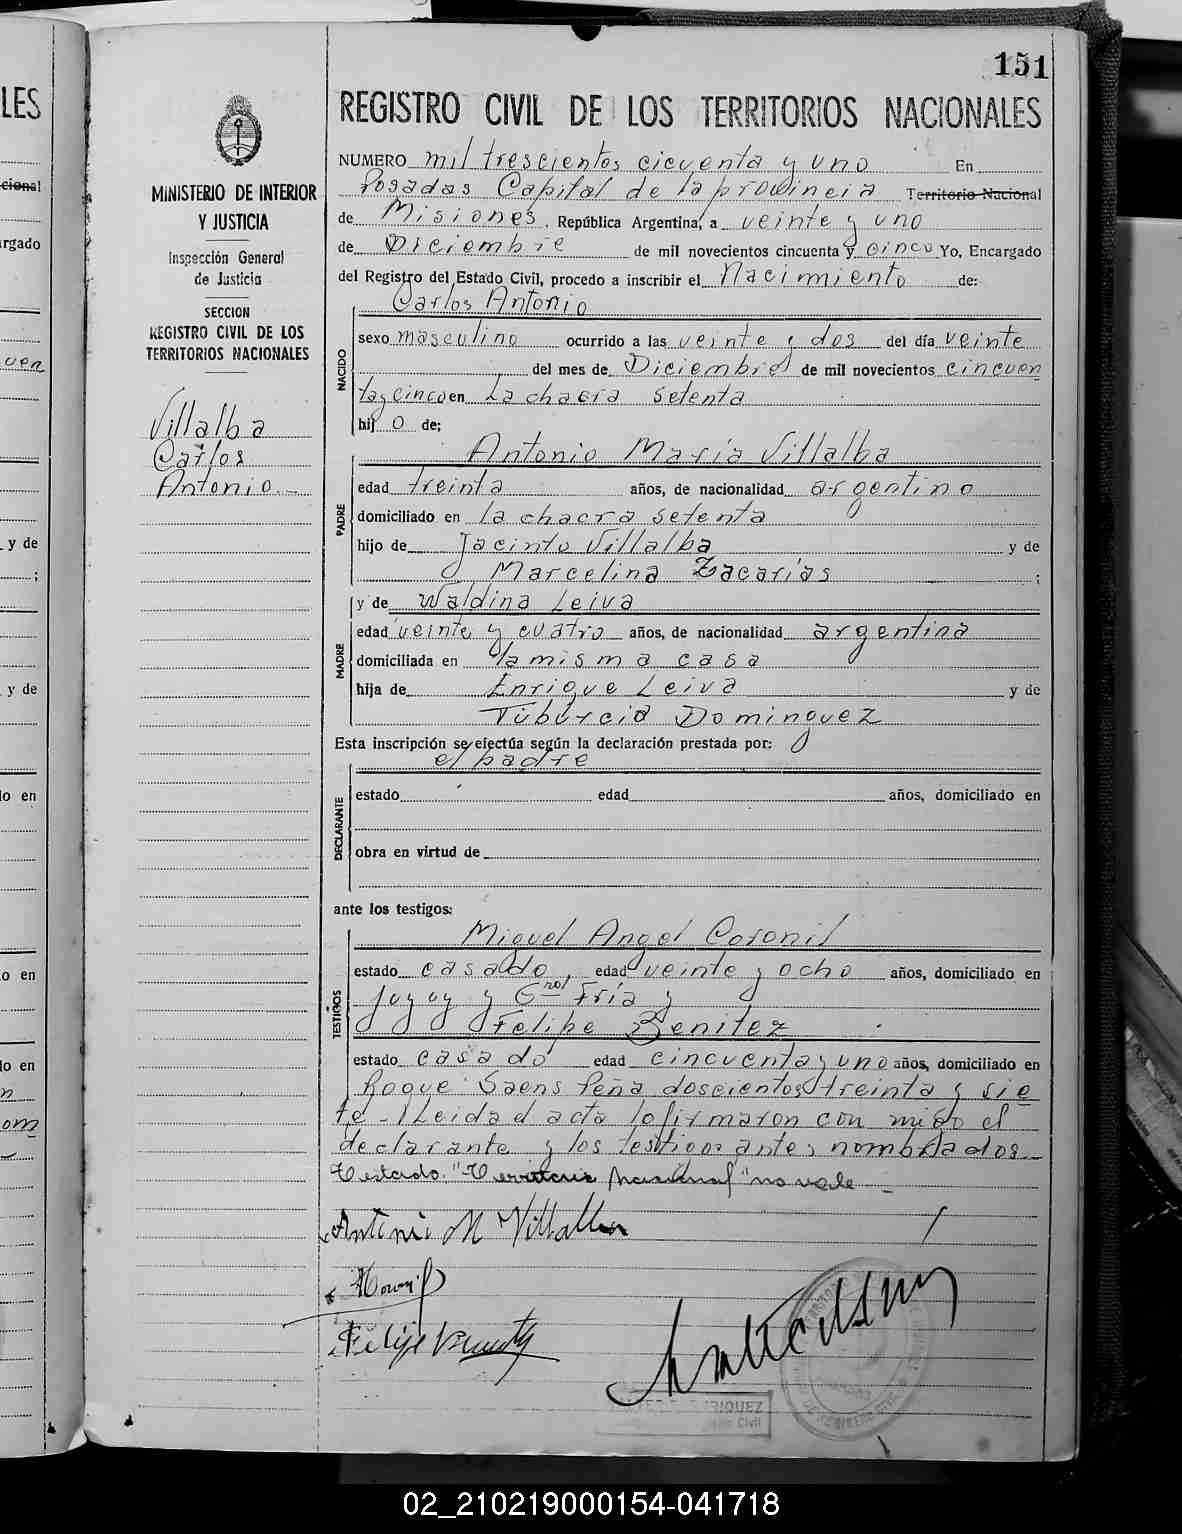 151
LES
REGISTRO CIVIL DE LOS TERRITORIOS NACIONALES
MINISTERIO DE INTERIOR
Y JUSTICIA
Inspección General
de Justicia
SECCION
REGISTRO CIVIL DE LOS
TERRITORIOS NACIONALES
Villalba
Carlos
Antonio.-
NUMERO mil trescientos cicuenta y uno En
Posadas Capital de la provincia Territorio Nacional
de Misiones, República Argentina, a veinte y uno
de Diciembre de mil novecientos cincuenta y cinco Yo, Encargado
del Registro del Estado Civil, procedo a inscribir el Nacimiento de:
Carlos Antonio
NACIDO
sexo masculino ocurrido a las veinte y dos del día veinte
del mes de Diciembre de mil novecientos cincuen
taycinco en La chacra setenta
hij o de;
Antonio María Villalba
PADRE
edad treinta años, de nacionalidad argentino
domiciliado en la chacra setenta
hijo de Jacinto Villalba y de
Marcelina Zacarías ;
y de Waldina Leiva
MADRE
edad veinte y cuatro años, de nacionalidad argentina
domiciliada en la misma casa
hija de Enrique Leiva y de
Tiburcia Dominguez
Esta inscripción se efectúa según la declaración prestada por:
el padre
DECLARANTE
estado edad años, domiciliado en
obra en virtud de
ante los testigos:
Miguel Angel Coronil
TESTIGOS
estado casado, edad veinte y ocho años, domiciliado en
Jujuy y Gral Fría y
Felipe Benitez
estado casado edad cincuenta y uno años, domiciliado en
Roque Saens Peña doscientos treinta y sie
te - Leida el acta lo firmaron con migo el
declarante y los testigos antes nombrados
Testado: "Territorio Nacional" no vale -
Antonio M Villalba
Felipe Benitez
02_210219000154-041718